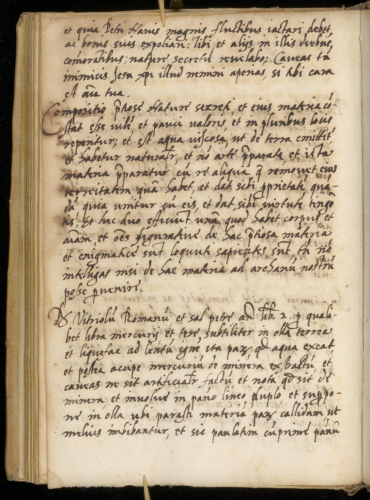 et quia Petri Navis magnis fluctibus iactari debet,
ac bonis suis expoliari: tibi et alijs in illis diebus,
comorantibus nature secretu revelabo: Caveas tn
inimicis Jesu xpi illud nemini aperias, si tibi cara
est aia tua.
Compositio ptiose Nature secreti, et eius materia co
stat esse vili, et pauci valoris et in pluribus locis
reperitur, et est aqua viscosa, ut de terra
et habetur naturalr, et no arte pparata, et ista
materia pparatur cu re aliqua q removet eius
terreitatem qua habet, et dat sibi pprietate qua
da quia unitur cu eis, et dat sibi virtute tingo
tis Et hec duo efficiunt unu quod habet corpus et
aiam, et oes de hac ptiosa materia
et enigmatice sunt loquuti sapientes sut, tn no
intelligas nisi de hac materia ad archanu nostru
posse pvenire.
Rx Vitriolu Romanu et sal petre an lib 2. p quali
bet libra mercurij et tere, subtiliter in olla terrea
et liquefac ad lentu igne ita pax qd aqua exeat
et postea accipe mercuriu de minera extractu et
caveas ne sit artificialr factu et nota qd sit de
minera et involve in pano lineo duplo et suppo
ne in olla ubi parasti materia pax callidam ut
melius imbibantur, et sic paulatim coprime panu